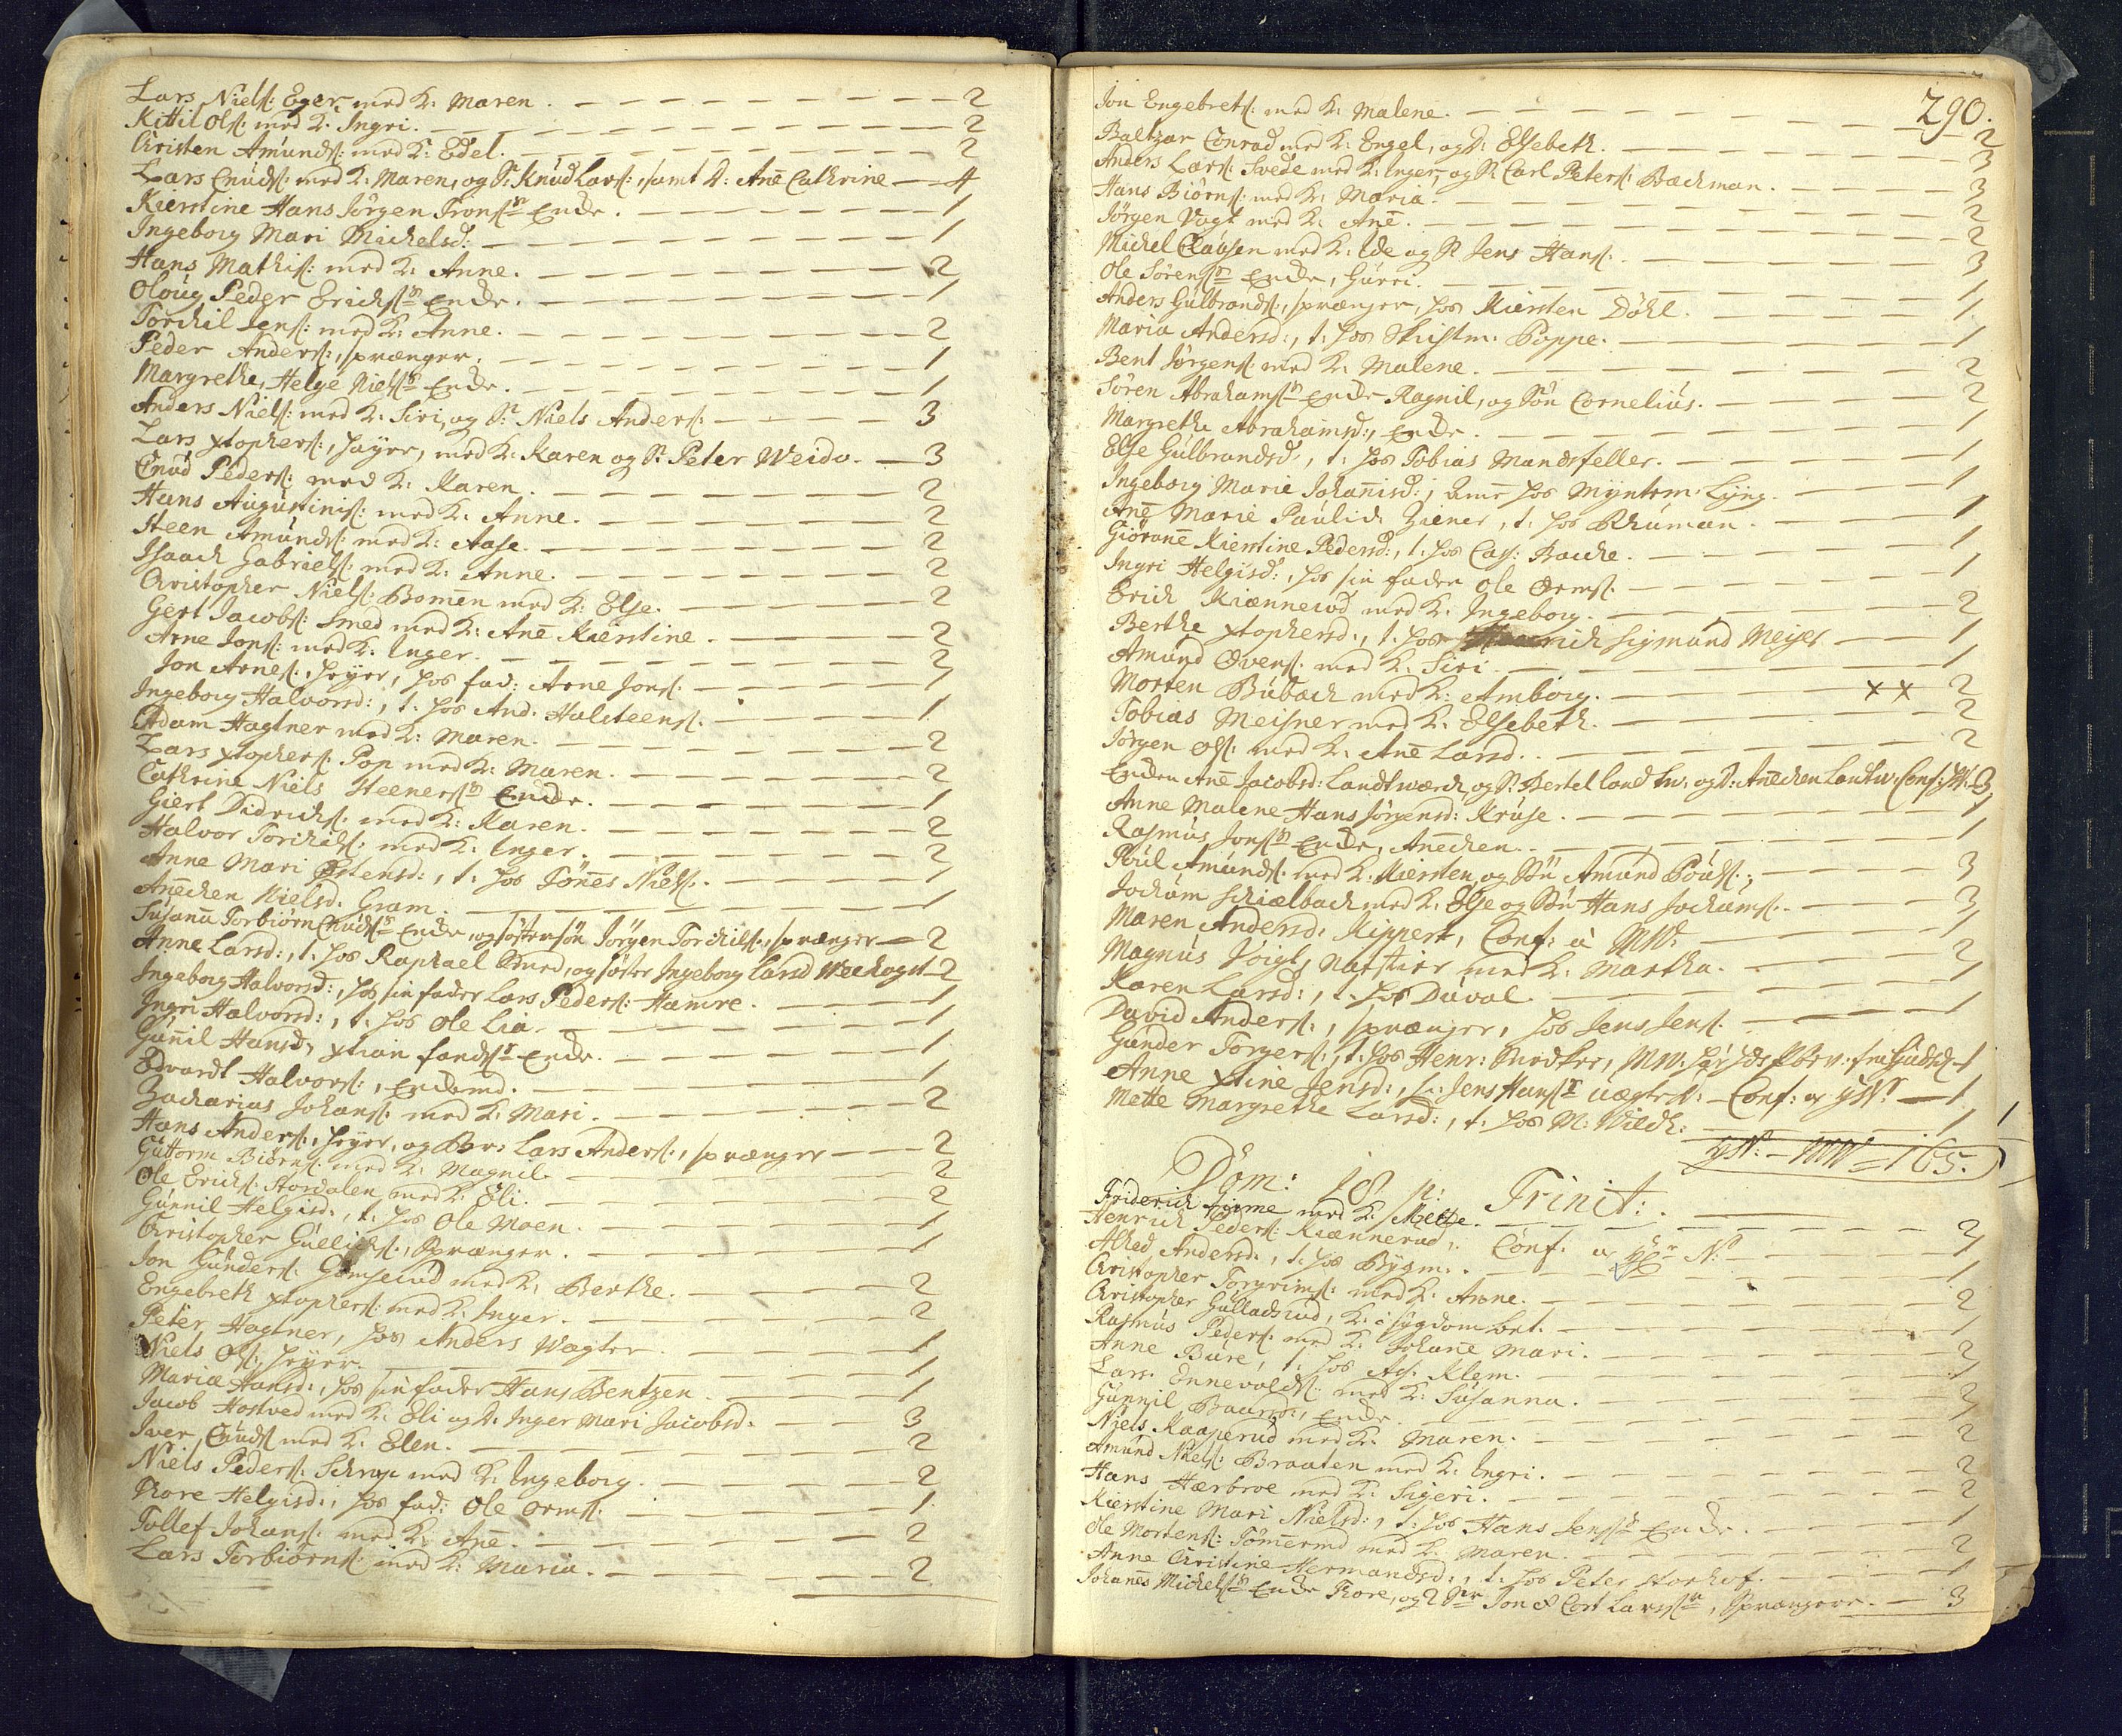 Lars Niels: Eger med K: Maren. 2
Kittil Ols: med K. Ingri. 2
Christen Amunds: med K: Edel. 2
Lars Cnuds: med K: Maren, og S: Knud Lars:, samt D: Ane Cathrine 4
Kierstine Hans Jørgen Frons Encke. 1
Ingeborg Mari Michelsd: 1
Hans Mathis: med K: Anne. 2
Oloug Peder Erichs Encke. 1
Torchil Jens: med K: Anne. 2
Peder Anders:, sprænger. 1
Margrethe, Helge Niels Encke. 1
Anders Niels: med K: Siri, og S: Niels Anders: 3
Lars xtophers:, Høyer, med K: Karen og S: Peter Weido. 3
Cnud Peders: med K: Karen. 2
Hans Augustinis: med K: Anne. 2
Steen Amunds: med K: Aase. 2
Isaach Gabriels: med K: Anne. 2
Christopher Niels: Bomen med K: Else. 2
Gert Jacobs: Smed med K: Ane Kierstine. 2
Arne Jons: med K: Inger. 2
Jon Arnes:, Heyer, hos fad: Arne Jons: 1
Ingeborg Halvorsd:, t: hos And: Halsteens: 1
Adam Hagtner med K: Maren. 2
Lars xtophers: Pop med K: Maren. 2
Cathrine Niels Steeners Encke. 1
Giert Didrichs: med K: Karen. 2
Halvor Torchils: med K: Inger. 2
Anne Mari Østensd:, t: hos Tønes Niels: 1
Anechen Nielsd: Gram. 1
Susana Torbiørn Cnuds Encke, og søstersøn Jørgen Torchils:, sprænger 2
Anne Larsd:, t: hos Raphael Smed, og søster Ingeborg Larsd 2
Ingeborg Halvorsd:, hos sin fader Lars Peders: Hamre. 1
Ingri Halvorsd:, t: hos Ole Lia. 1
Gunil Hansd, xtian Encke. 1
Edvardt Halvors:, Enckemd. 1
Zacharias Johans: med K: Mari. 2
Hans Anders:, Heyer, og Br: Lars Anders:, sprænger 2
Guttorm Biørns: med K: Magnil. 2
Ole Erichs: Stordalen med K: Eli. 2
Gunnil Helgisd:, t: hos Ole Moen. 1
Christopher Gullichs:, Sprænger. 1
Jon Gunders: Gomserud med K: Berthe. 2
Engebreth xtophers: med K: Inger. 2
Peter Hagtner, hos Anders Wagter. 1
Niels Ols:, Heyer. 1
Maria Hansd:, hos sin fader Hans Bentzen. 1
Jacob Hostved med K: Eli og D: Inger Mari Jacobsd: 3
Iver Cnuds: med K: Elen. 2
Niels Peders: med K: Ingeborg. 2
Thore Helgisd:, hos fad: Ole Orms: 1
Tollef Johans: med K: Ane. 2
Lars Torbiørns: med K: Maria. 2
290.
Jon Engebrets: med K: Malene. 2
Baltzar Conrad med K: Engel, og D: Elsebeth. 3
Anders Lars: Svede med K: Inger, og S: Carl Peters: Backman. 3
Hans Biørns: med K: Maria. 2
Jørgen Vogt med K: Ane. 2
Michel Clausen med K: Ide og S: Jens Hans: 3
Ole Sørens Encke, Gurri. 1
Anders Gulbrands:, sprænger, hos Kiersten Døhl. 1
Maria Andersd:, t: hos Skriftm: Poppe. 1
Bent Jørgens: med K: Malene. 2
Søren Abrahams Encke Ragnil, og Søn Cornelius. 2
Margrethe Abrahamsd:, Encke. 1
Else Gulbrandsd, t: hos Tobias Mandsfeller. 1
Ingeborg Marie Johanisd:, Ame hos Myntsm: Lyng. 1
Ane Marie Paulich Ziener, t: hos Rhuman. 1
Giørane Kierstine Pedersd:, t: hos Casp: Backe. 1
Ingri Helgisd:, hos sin fader Ole Orms: 1
Erich Kiennerud med K: Ingeborg. 2
Berthe xtophersd:, t: hos Sigmund Meyer 1
Amund Øvens: med K: Siri. 1
Morten Bubach med K: Amborg. xx 2
Tobias Meisner med K: Elsebeth. 2
Jørgen Ols: med K: Ane Larsd. 2
Encken Ane Jacobsd: Landtwærch og S: Bertel og D: Anechen 3
Anne Malene Hans Jørgensd: Kruse. 1
Rasmus Jons Encke, Anechen. 1
Poul Amunds: med K: Kiersten, og Søn Amund Pouls: 3
Jocham Schielbach med K: Else og Søn Hans Jochams: 3
Maren Andersd: Kippert, Conf: à MW: 1
Magnus Voigt, med K: Martha. 2
Karen Larsd:, t: hos Duval. 1
David Anders:, sprænger, hos Jens Jens: 1
Gunder Torgers:, t: hos Henr: 1
Anne xtine Jensd:, Jens Hans Conf: 1
Mette Margrethe Larsd:, t: hos M: Wildh: 1
165.
Dom: 18 p: Trinit:
Friderich med K: Mette. 2
Henrich Peders: Kiennerud, Conf: 1
Ahed Andersd:, t: hos Bygm: 1
Christopher Torgrims: med K: Anne. 2
Christopher Gulladsrud, K: i sygdom bet: 1
Rasmus Peders: med K: Johane Mari. 2
Anne Bure, t: hos Klem. 1
Lars Ennevolds: med K: Susanna. 2
Gunnil Baarsd:, Encke. 1
Niels Kaaperud med K: Maren. 2
Amund Niels: Braaten med K: Ingri. 2
Hans Hærbroe med K: Sigeri. 2
Kierstine Mari Nielsd:, t: hos Hans Jens Encke. 1
Ole Mortens: Tømermd med K: Maren. 2
Anne Christine Hermandsd:, t: hos Peter Storhof. 1
Johanes Michels Encke Thore, og 2 Jon & Cort Lars, Sprængere. 3